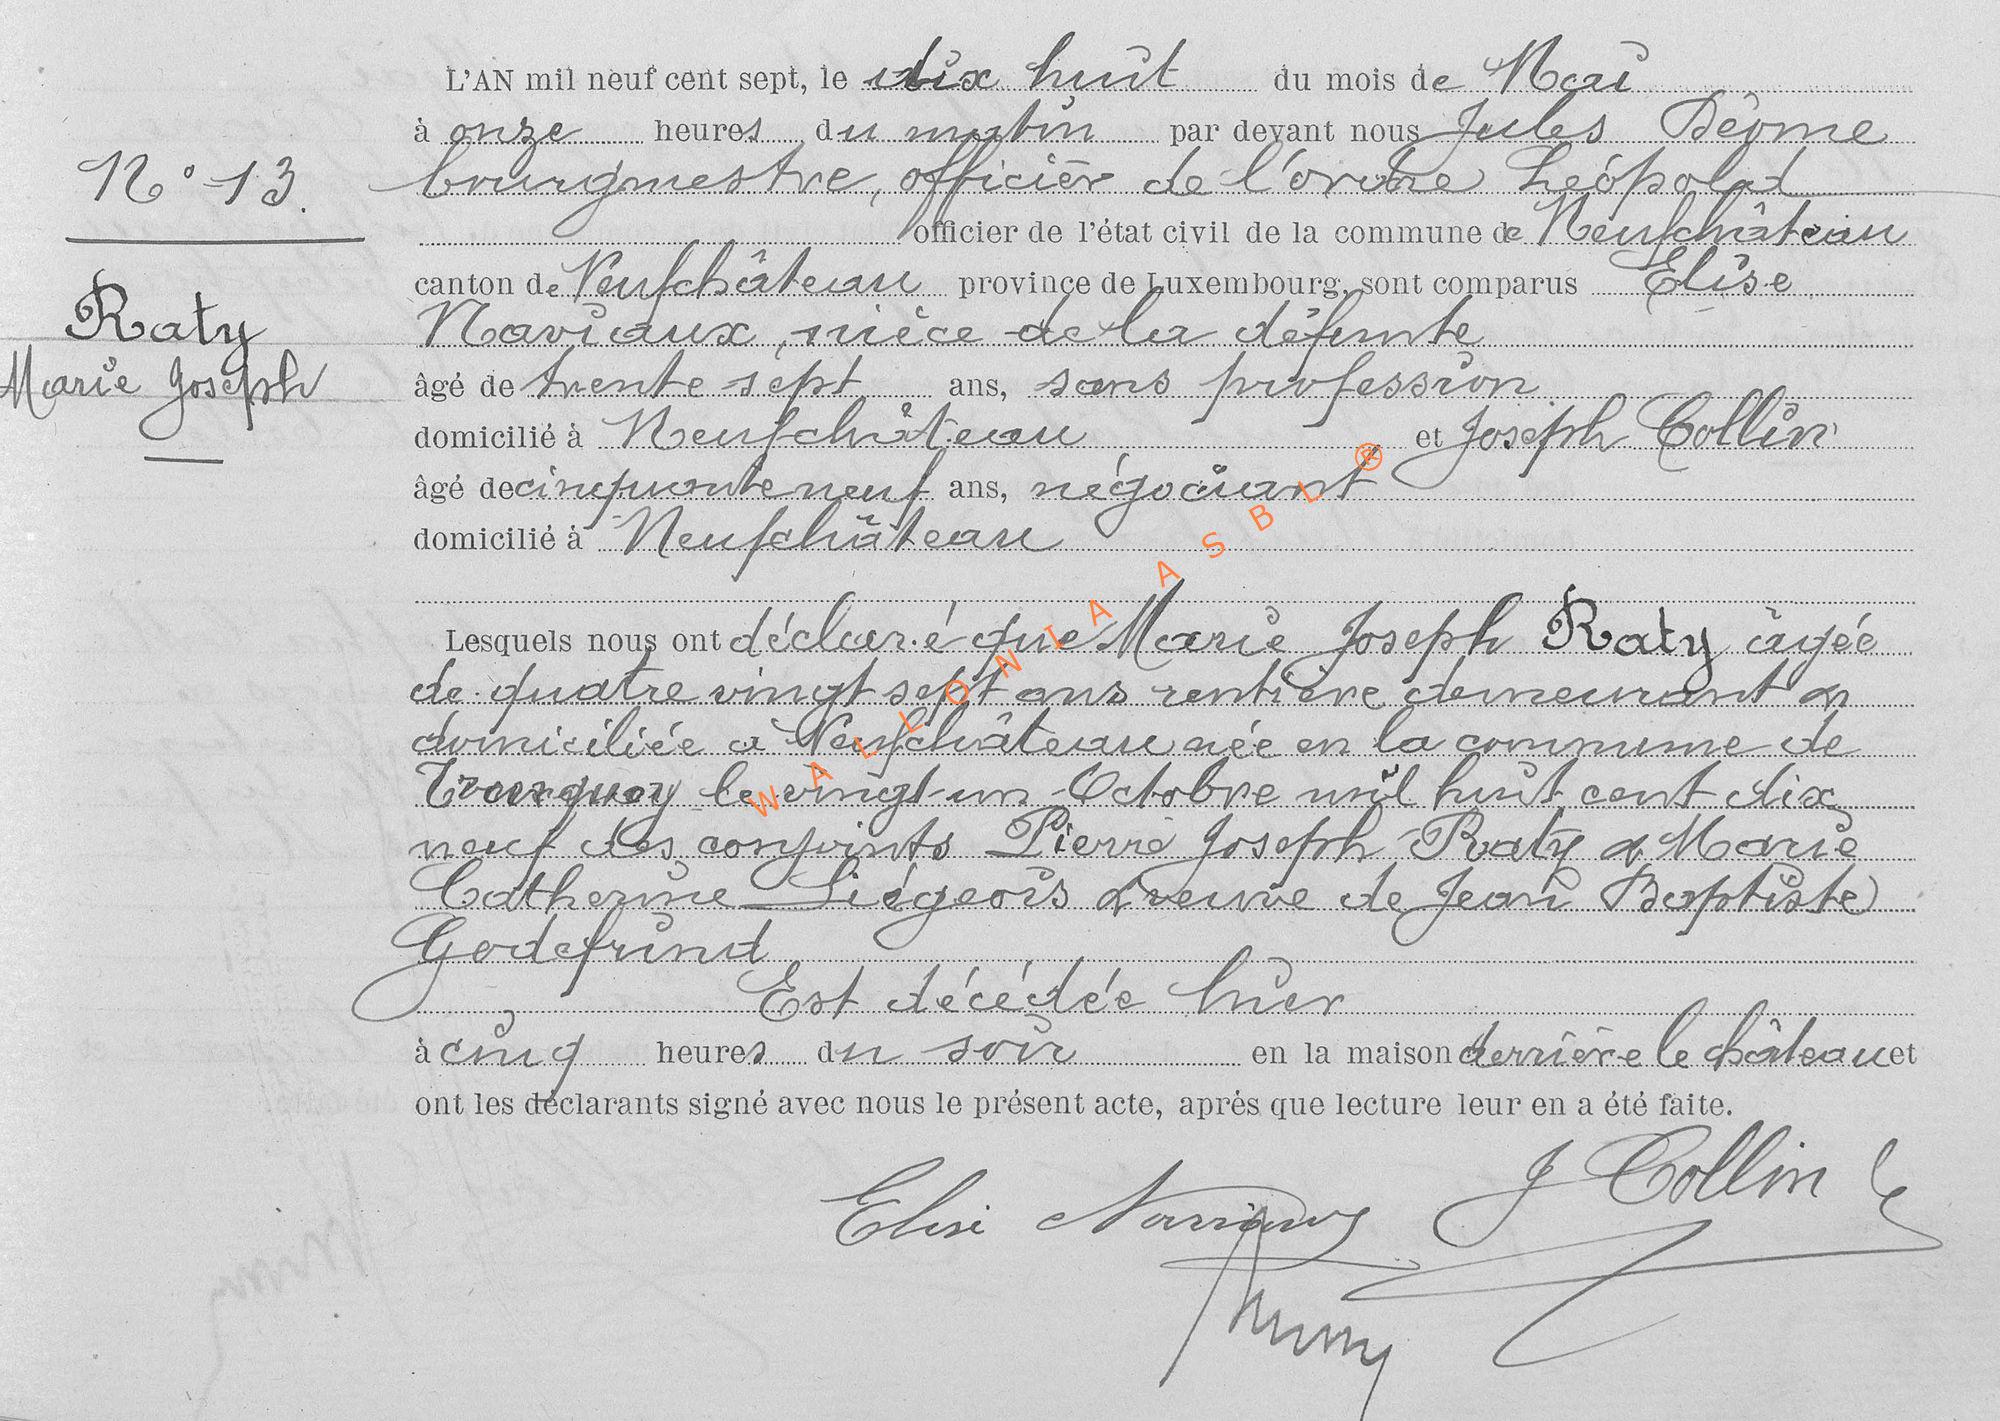 L'AN mil neuf cent sept, le dix huit du mois de Mai
à onze heures du matin par devant nous Jules
N° 13. bourgmestre, officier de l'ordre Léopold
officier de l'état civil de la commune de Neufchâteau
canton de Neufchâteau province de Luxembourg, sont comparus Elise
Raty
Marie Joseph
Naviaux, nièce de la défunte
âgé de trente sept ans, sans profession
domicilié à Neufchâteau et Joseph Collin
âgé de cinquante neuf ans, négociant
domicilié à Neufchâteau
Lesquels nous ont déclaré que Marie Joseph Raty âgée
de quatre vingt sept ans rentière demeurant &
domiciliée à Neufchâteau née en la commune de
le vingt-un Octobre mil huit cent dix
neuf des conjoints Pierre Joseph Raty & Marie
Catherine Liégeois & veuve de Jean Baptiste
Godefrind
Est décédée hier
à cinq heures du soir en la maison derrière le château et
ont les déclarants signé avec nous le présent acte, après que lecture leur en a été faite.
Elise Naviaux J Collin
WALLONIA ASBL ®